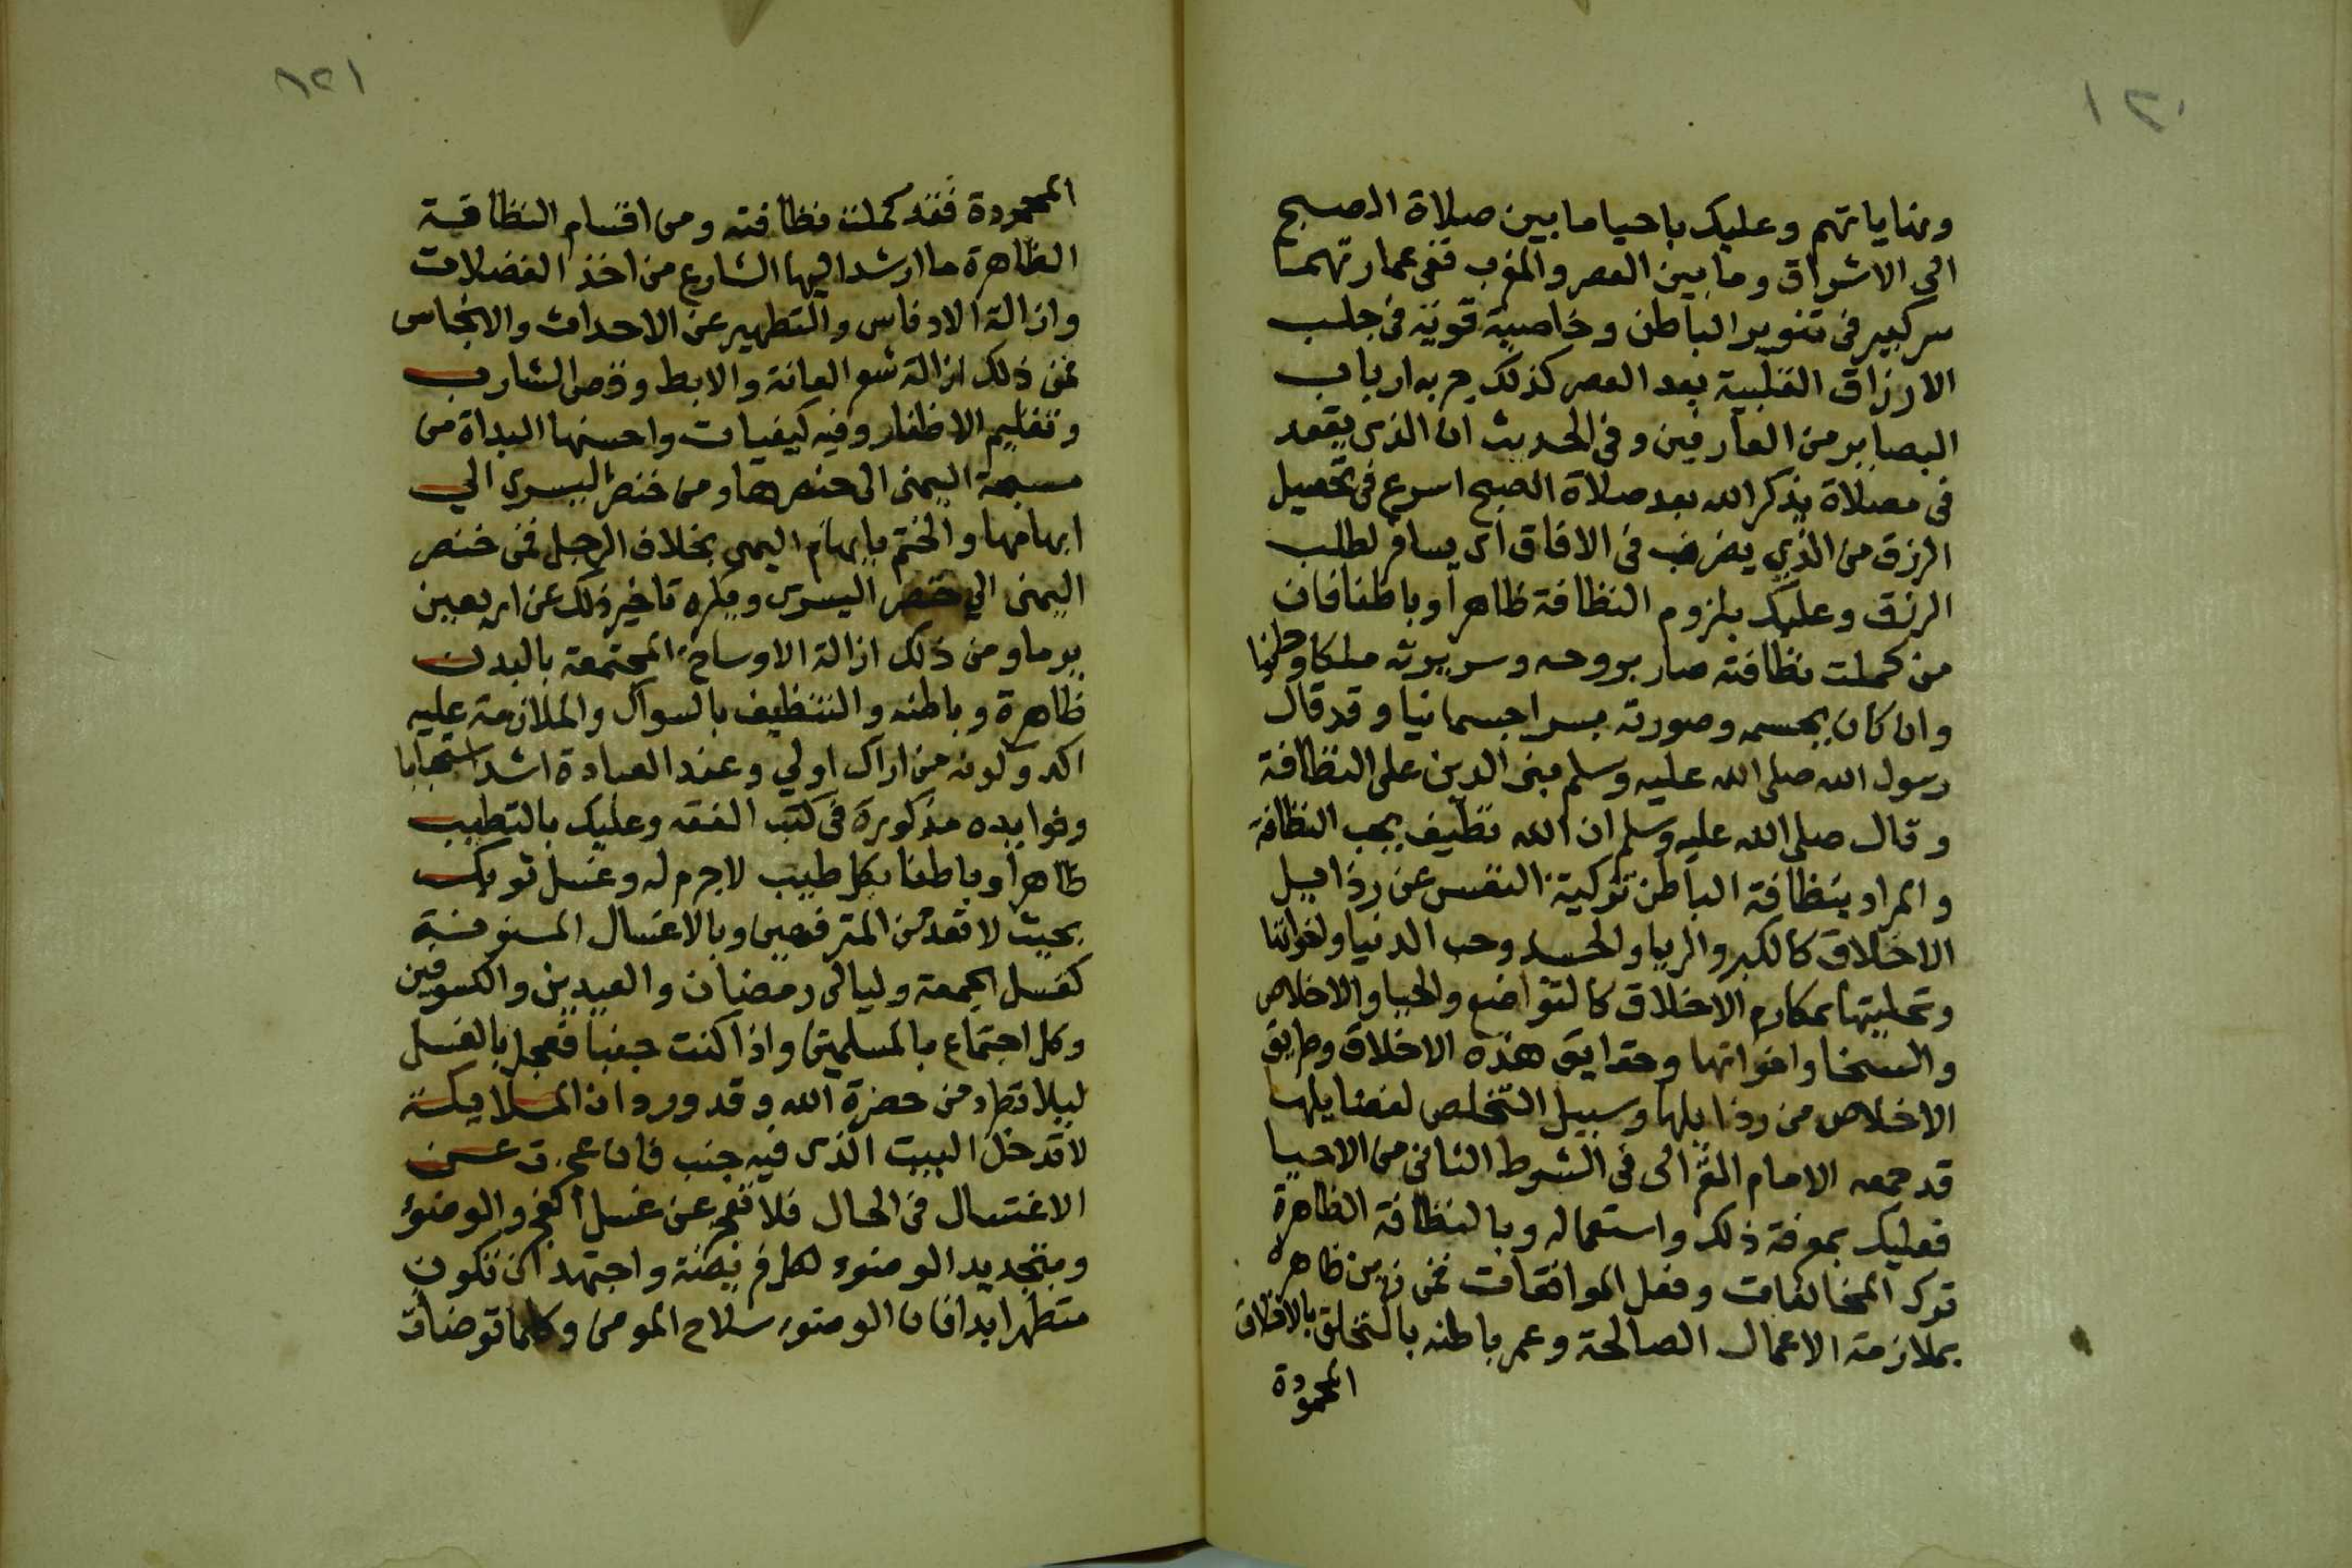 ١٢٠
ونهاياتهم وعليك باحيا ما بين صلاة الصبح
الى الاشراق وما بين العصر والمغرب ففى عمارتهما
سر كبير فى تنوير الباطن وخاصية قوية فى جلب
الارزاق القلبية بعد العصر كذلك جربه ارباب
البصاير من العارفين وفى الحديث ان الذى يقعد
فى مصلاة يذكر الله بعد صلاة الصبح اسرع فى تحصيل
الرزق من الذي يضرب فى الافاق اى يسافر لطلب
الرزق وعليك بلزوم النظافة ظاهرا وباطنا فان
من كملت نظافته صار بروحه وسريرته ملكا
وان كان بجسمه وصورته بسرا جسمانيا وقد قال
رسول الله صلى الله عليه وسلم مبنى الدين على النظافة
وقال صلى الله عليه وسلم ان الله نظيف يحب النظافة
والمراد بنظافة الباطن تزكية النفس عن رذايل
الاخلاق كالكبر والريا والحسد وحب الدنيا واخواتها
وتحليتها بمكارم الاخلاق كالتواضع والحيا والاخلاص
والسخا واخواتها وحقايق هذه الاخلاق وطريق
الاخلاص من رذايلها وسبيل التخلص لفضايلها
قد جمعه الامام الغزالى فى الشرط الثانى من الاحيا
فعليك بمعرفة ذلك واستعماله وبالنظافة الظاهرة
ترك المخالفات وفعل الموافقات فمن زين ظاهره
بملازمة الاعمال الصالحة وعمر باطنه بالتخلق بالاخلاق
المحمودة
١٢١
المحمودة فقد كملت نظافته ومن اقسام النظافة
الظاهرة ما ارشد اليها الشارع من اخذ الفضلات
وازالة الادناس والتطهير عن الاحداث والانجاس
فمن ذلك ازالة شعر العانة والابط وقص الشارب
وتقليم الاظفار وفيه كيفيات واحسنها البداة من
مسبحة اليمنى الى خنصرها ومن خنصر اليسرى الي
ابهامها والختم بابهام اليمنى بخلاف الرجل فمن خنصر
اليمنى الي خنصر اليسرى ويكره تاخير ذلك عن اربعين
يوما ومن ذلك ازالة الاوساخ المجتمعة بالبدن
ظاهرة وباطنه والتنظيف بالسواك والملازمة عليه
اكد وكونه من اراك اولي وعند العبادة اشد استحبابا
وفوايده مذكورة فى كتب الفقه وعليك بالتطيب
ظاهرا وباطنا بكل طيب لاجرم له وغسل ثوبك
بحيث لا تعد من المترفهين وبالاغسال المسنونة
كغسل الجمعة وليالى رمضان والعيدين والكسوفين
وكل اجتماع بالمسلمين واذا كنت جنبا فعجل بالغسل
ليلا تطرد من حضرة الله وقد ورد ان الملايكة
لا تدخل البيت الذى فيه جنب فان عجزت عن
الاغتسال فى الحال فلا تعجز عن غسل الفرج والوضوء
وبتجديد الوضوء لكل فريضة واجتهد ان تكون
متطهرا ابدا فان الوضوء سلاح المومن وكلما توضات